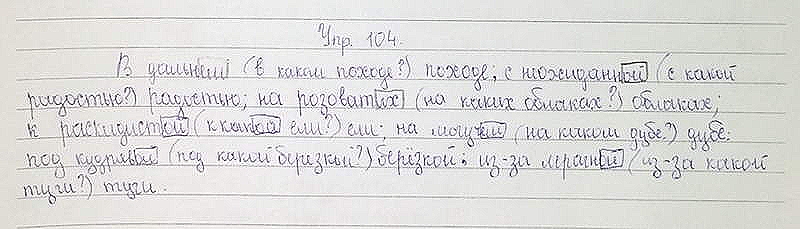 Упр. 104.
В дальнем (в каком походе?) походе; с неожиданной (с какой
радостью?) радостью; на розоватых (на каких облаках?) облаках;
к раскидистой (к какой ели?) ели; на могучем (на каком дубе?) дубе;
под кудрявой (под какой березкой?) берёзкой; из-за мрачной (из-за какой
тучи?) тучи.